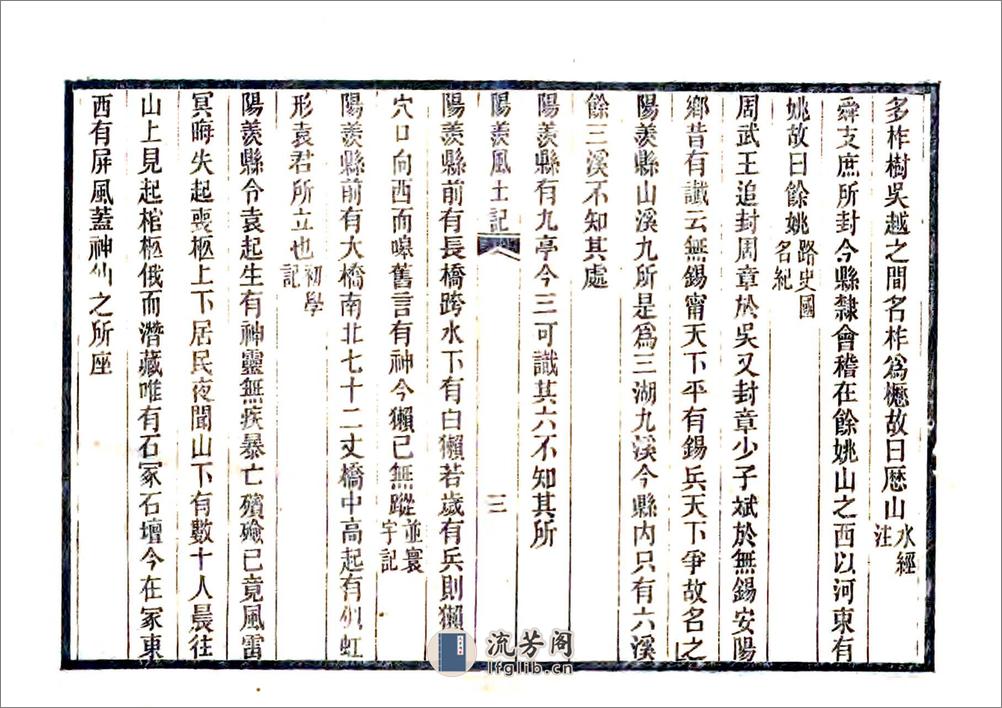 多柞樹吳越之間名柞爲櫪故曰歷山水經注
舜支庶所封今縣隸會稽在餘姚山之西以河東有
姚故曰餘姚路史國名紀
周武王追封周章於吳又封章少子斌於無錫安陽
鄉昔有讖云無錫甯天下平有錫兵天下爭故名之
陽羨縣山溪九所是爲三湖九溪今縣內只有六溪
餘三溪不知其處
陽羨縣有九亭今三可識其六不知其所
陽羨風土記
三
陽羨縣前有長橋跨水下有白獺若歲有兵則獺
穴口向西而嗥舊言有神今獺已無蹤並寰宇記
陽羨縣前有大橋南北七十二丈橋中高起有似虹
形袁君所立也初學記
陽羨縣令袁起生有神靈無疾暴亡殯殮已竟風雷
冥晦失起喪柩上下居民夜聞山下有數十人晨往
山上見起棺柩俄而潛藏唯有石冢石壇今在冢東
西有屏風蓋神仙之所座
流芳阁
lfglib.cn